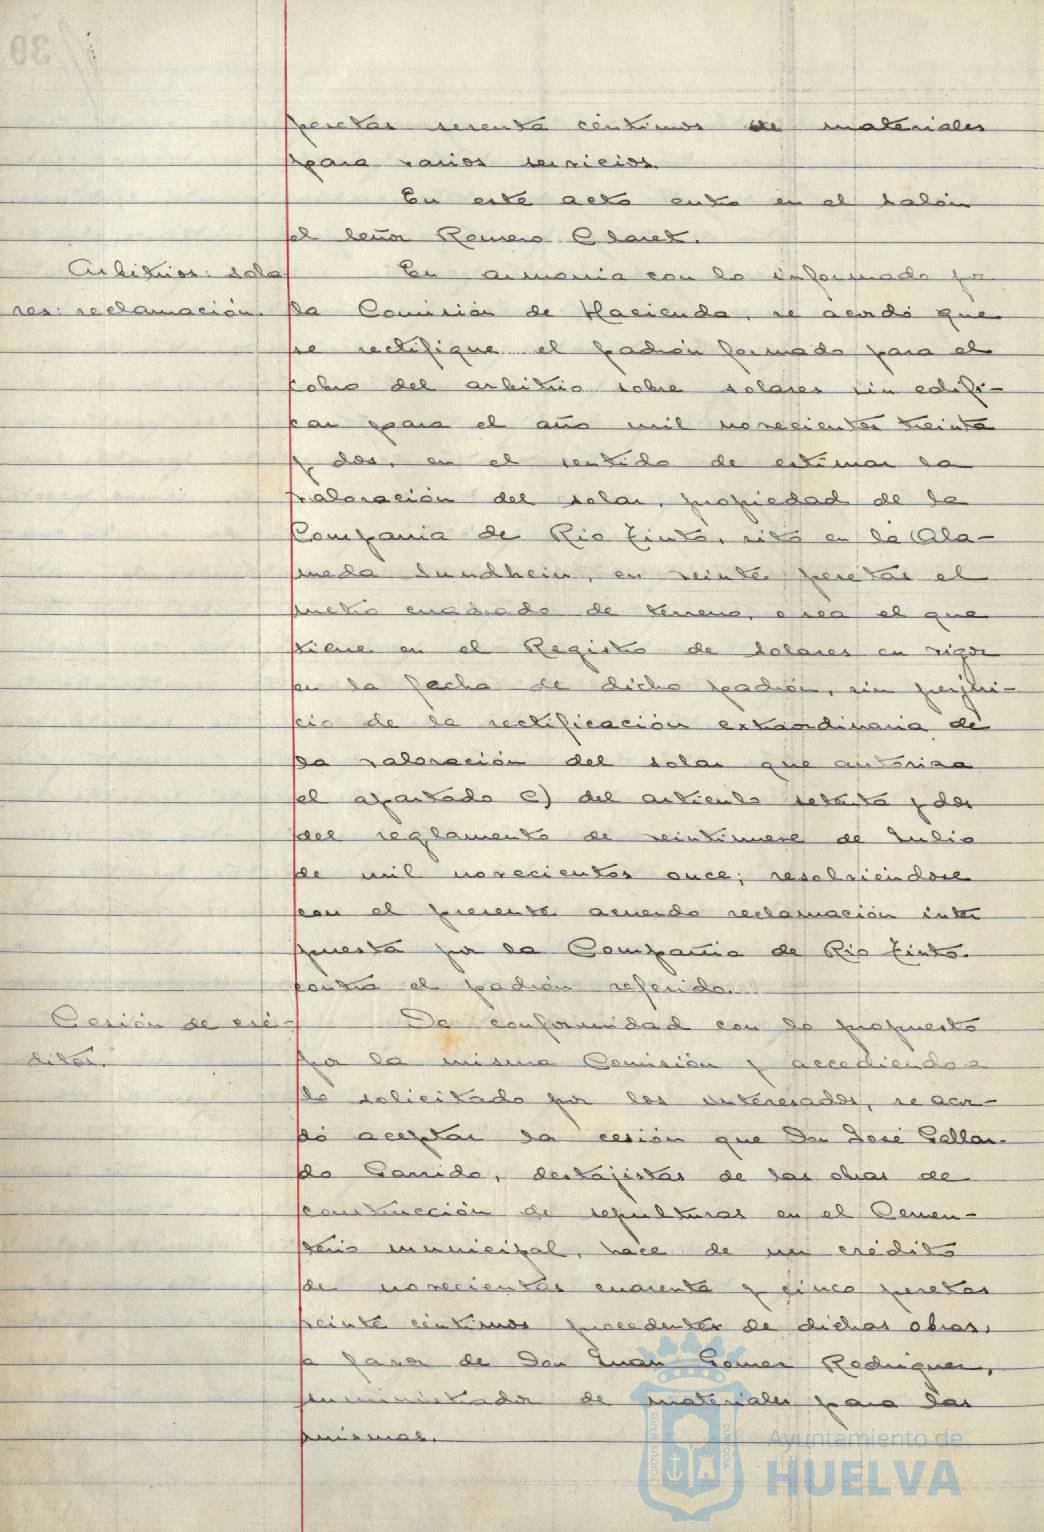 pesetas sesenta céntimos de materiales
para varios servicios.
En este acto entró en el salón
el señor Romero Claret.
Arbitrios: sola
res: reclamación.
En armonia con lo informado por
la Comisión de Hacienda, se acordó que
se rectifique el padrón formado para el
cobro del arbitrio sobre solares sin edifi-
car para el año mil novecientos treinta
y dos, en el sentido de estimar la
valoración del solar, propiedad de la
Compania de Rio Tinto, sito en la Ala-
meda Sundhein, en veinte pesetas el
metro cuadrado de terreno, o sea el que
tiene en el Registro de solares en vigor
en la fecha de dicho padrón, sin perjui-
cio de la rectificación extraordinaria de
la valoración del solar que autoriza
el apartado C) del articulo setenta y dos
del reglamento de veintinueve de Julio
de mil novecientos once; resolviendose
con el presente acuerdo reclamación inter
puesta por la Compañia de Rio Tinto
contra el padrón referido.
Cesión de cré-
ditos.
De conformidad con lo propuesto
por la misma Comisión y accediendo a
lo solicitado por los interesados, se acor-
dó aceptar la cesión que Don José Gallar-
do Garrido, destajistas de las obras de
construcción de sepulturas en el Cemen-
terio municipal, hace de un crédito
de novecientas cuarenta y cinco pesetas
veinte céntimos procedentes de dichas obras,
a favor de Don Juan Gomez Rodriguez,
suministrador de materiales para las
mismas.
Ayuntamiento de
HUELVA